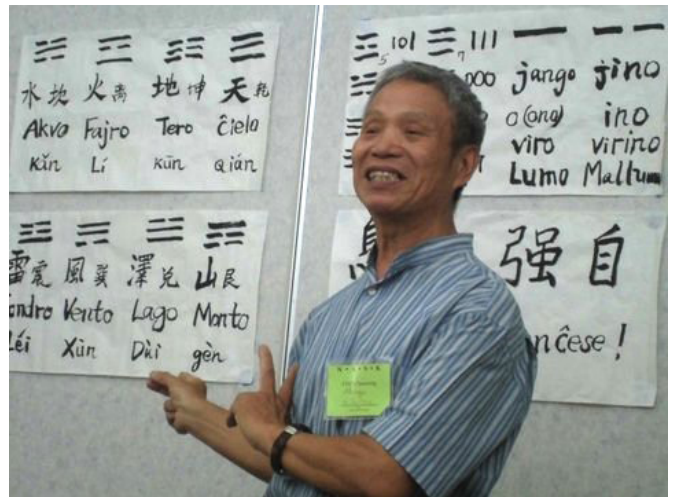 水 坎 火 离 地 坤 天 乾
Akvo Fajro Tero Ĉielo
Kǎn Lí Kūn Qián
雷 震 風 巽 澤 兑 山 艮
ondro Vento Lago Monto
Léi Xùn Dùi gèn
5 101 7 111
000 jango jino
o(ono) ino
viro virino
Lumo Mallum
强 自
nĉese !